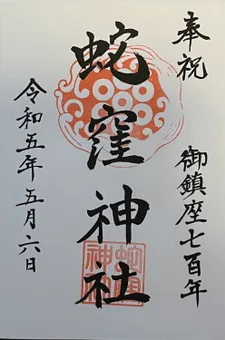 奉祝
御鎮座七百年
蛇窪神社
令和五年五月六日
蛇窪
神社